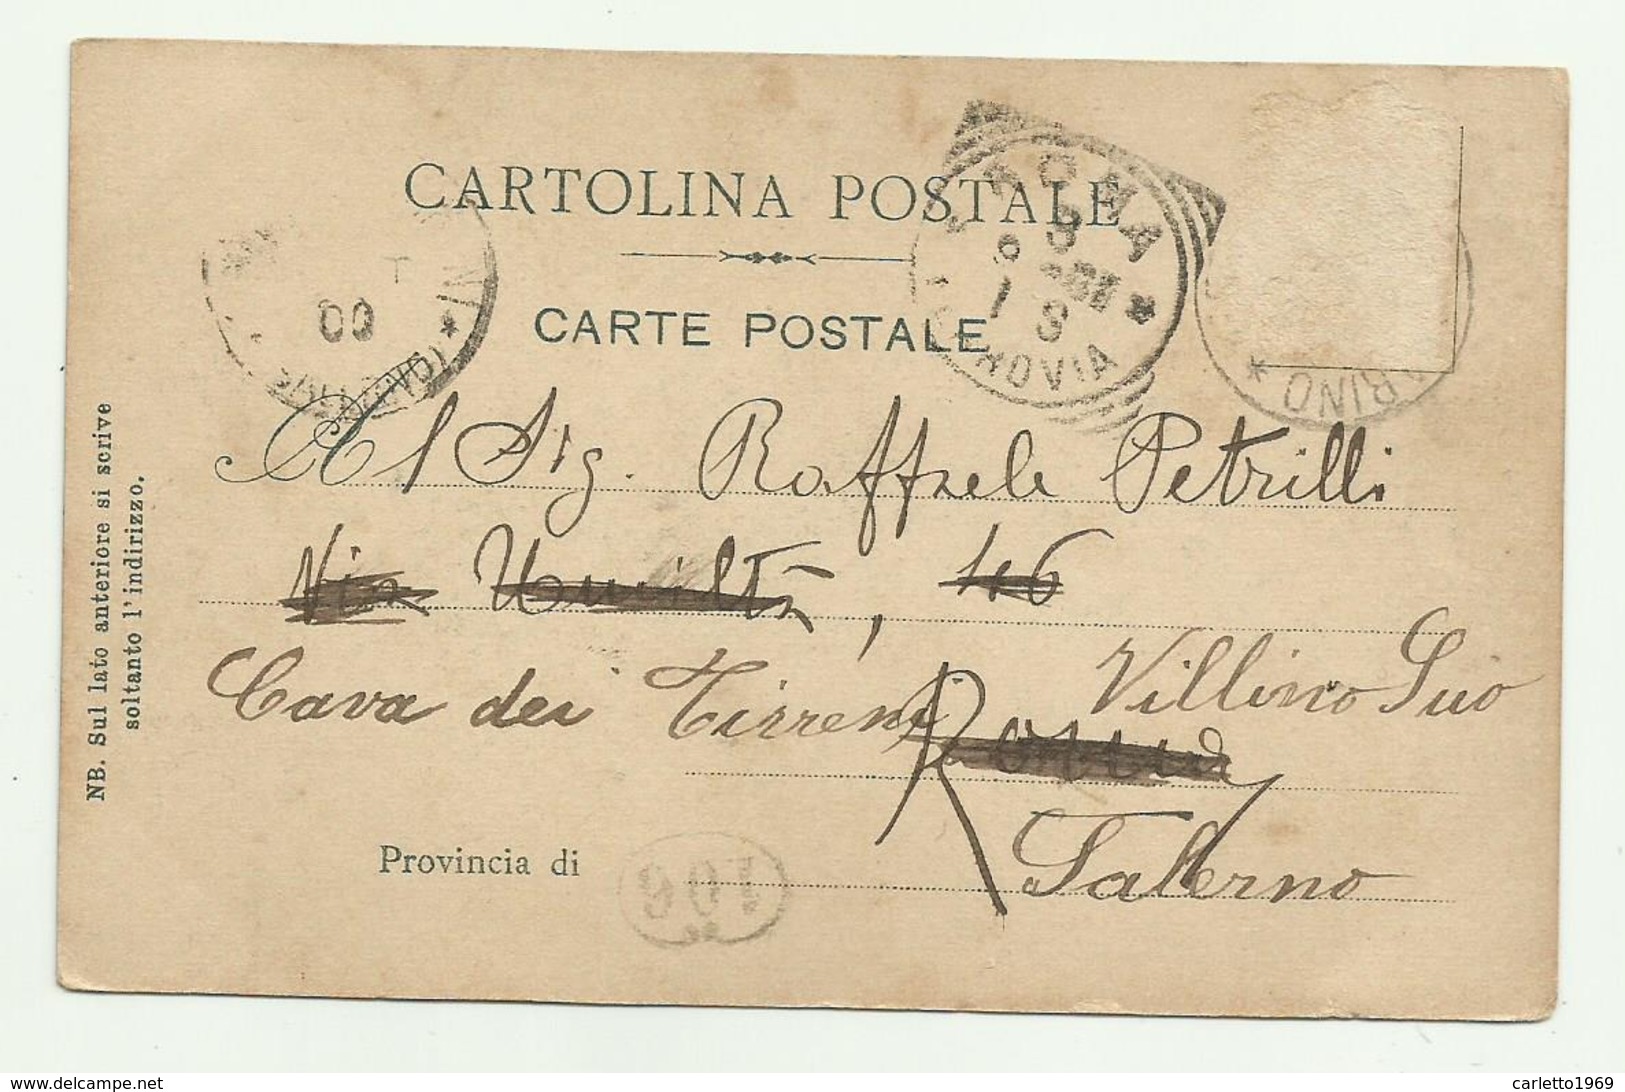 CARTOLINA POSTALE
CARTE POSTALE
ROMA
FERROVIA
00
NB. Sul lato anteriore si scrive
soltanto l'indirizzo.
Al Sig. Raffaele Petrilli
Via Umiltà, 46
Cava dei Tirreni Villino Siio
Roma
Provincia di Salerno
carletto1969